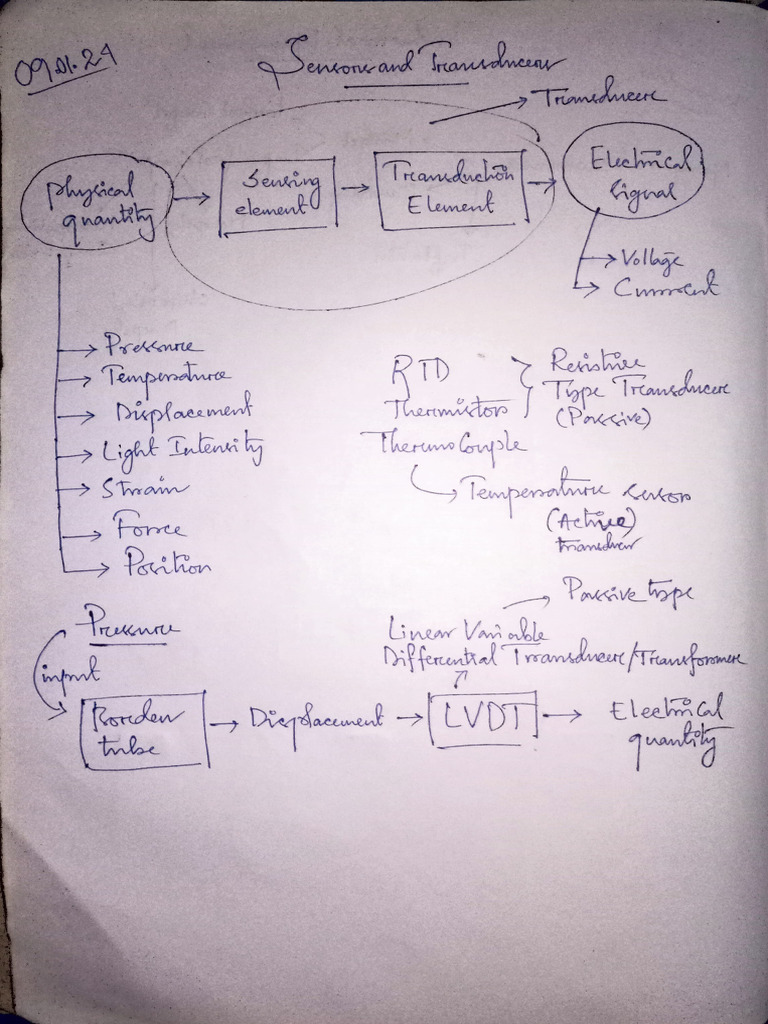 09.01.24
Sensors and Transducers
Transducer
Physical
quantity
Sensing
element
Transduction
Element
Electrical
Signal
Voltage
Current
Pressure
Temperature
Displacement
Light Intensity
Strain
Force
Position
RTD
Thermistors
Resistive
Type Transducer
(Passive)
ThermoCouple
Temperature sensor
(Active)
transducer
Pressure
input
Borden
tube
Displacement
Passive type
Linear Variable
Differential Transducer/Transformer
LVDT
Electrical
quantity